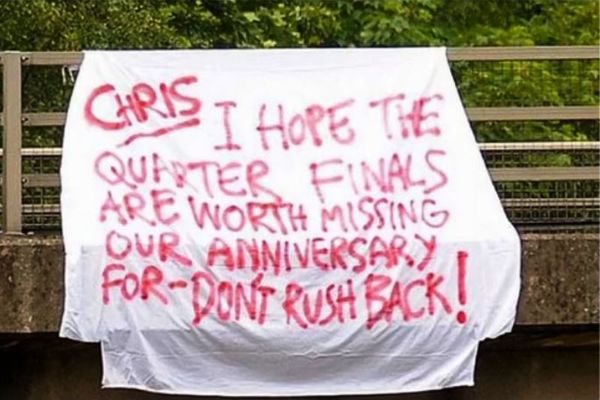 CHRIS I HOPE THE
QUARTER FINALS
ARE WORTH MISSING
OUR ANNIVERSARY
FOR-DON'T RUSH BACK!